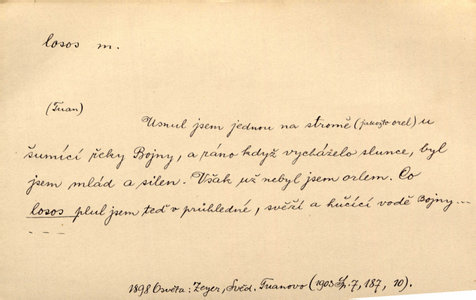 losos m.
(Tuan)
Usnul jsem jednou na stromě (jakožto orel) u
šumící řeky Bojny, a ráno když vycházelo slunce, byl
jsem mlád a silen. Však už nebyl jsem orlem. Co
losos plul jsem teď v průhledné, svěží a hučící vodě Bojny...
1898 Osvěta: Zeyer, Svěd. Tuanovo (1903 Sp. 7, 187, 10).